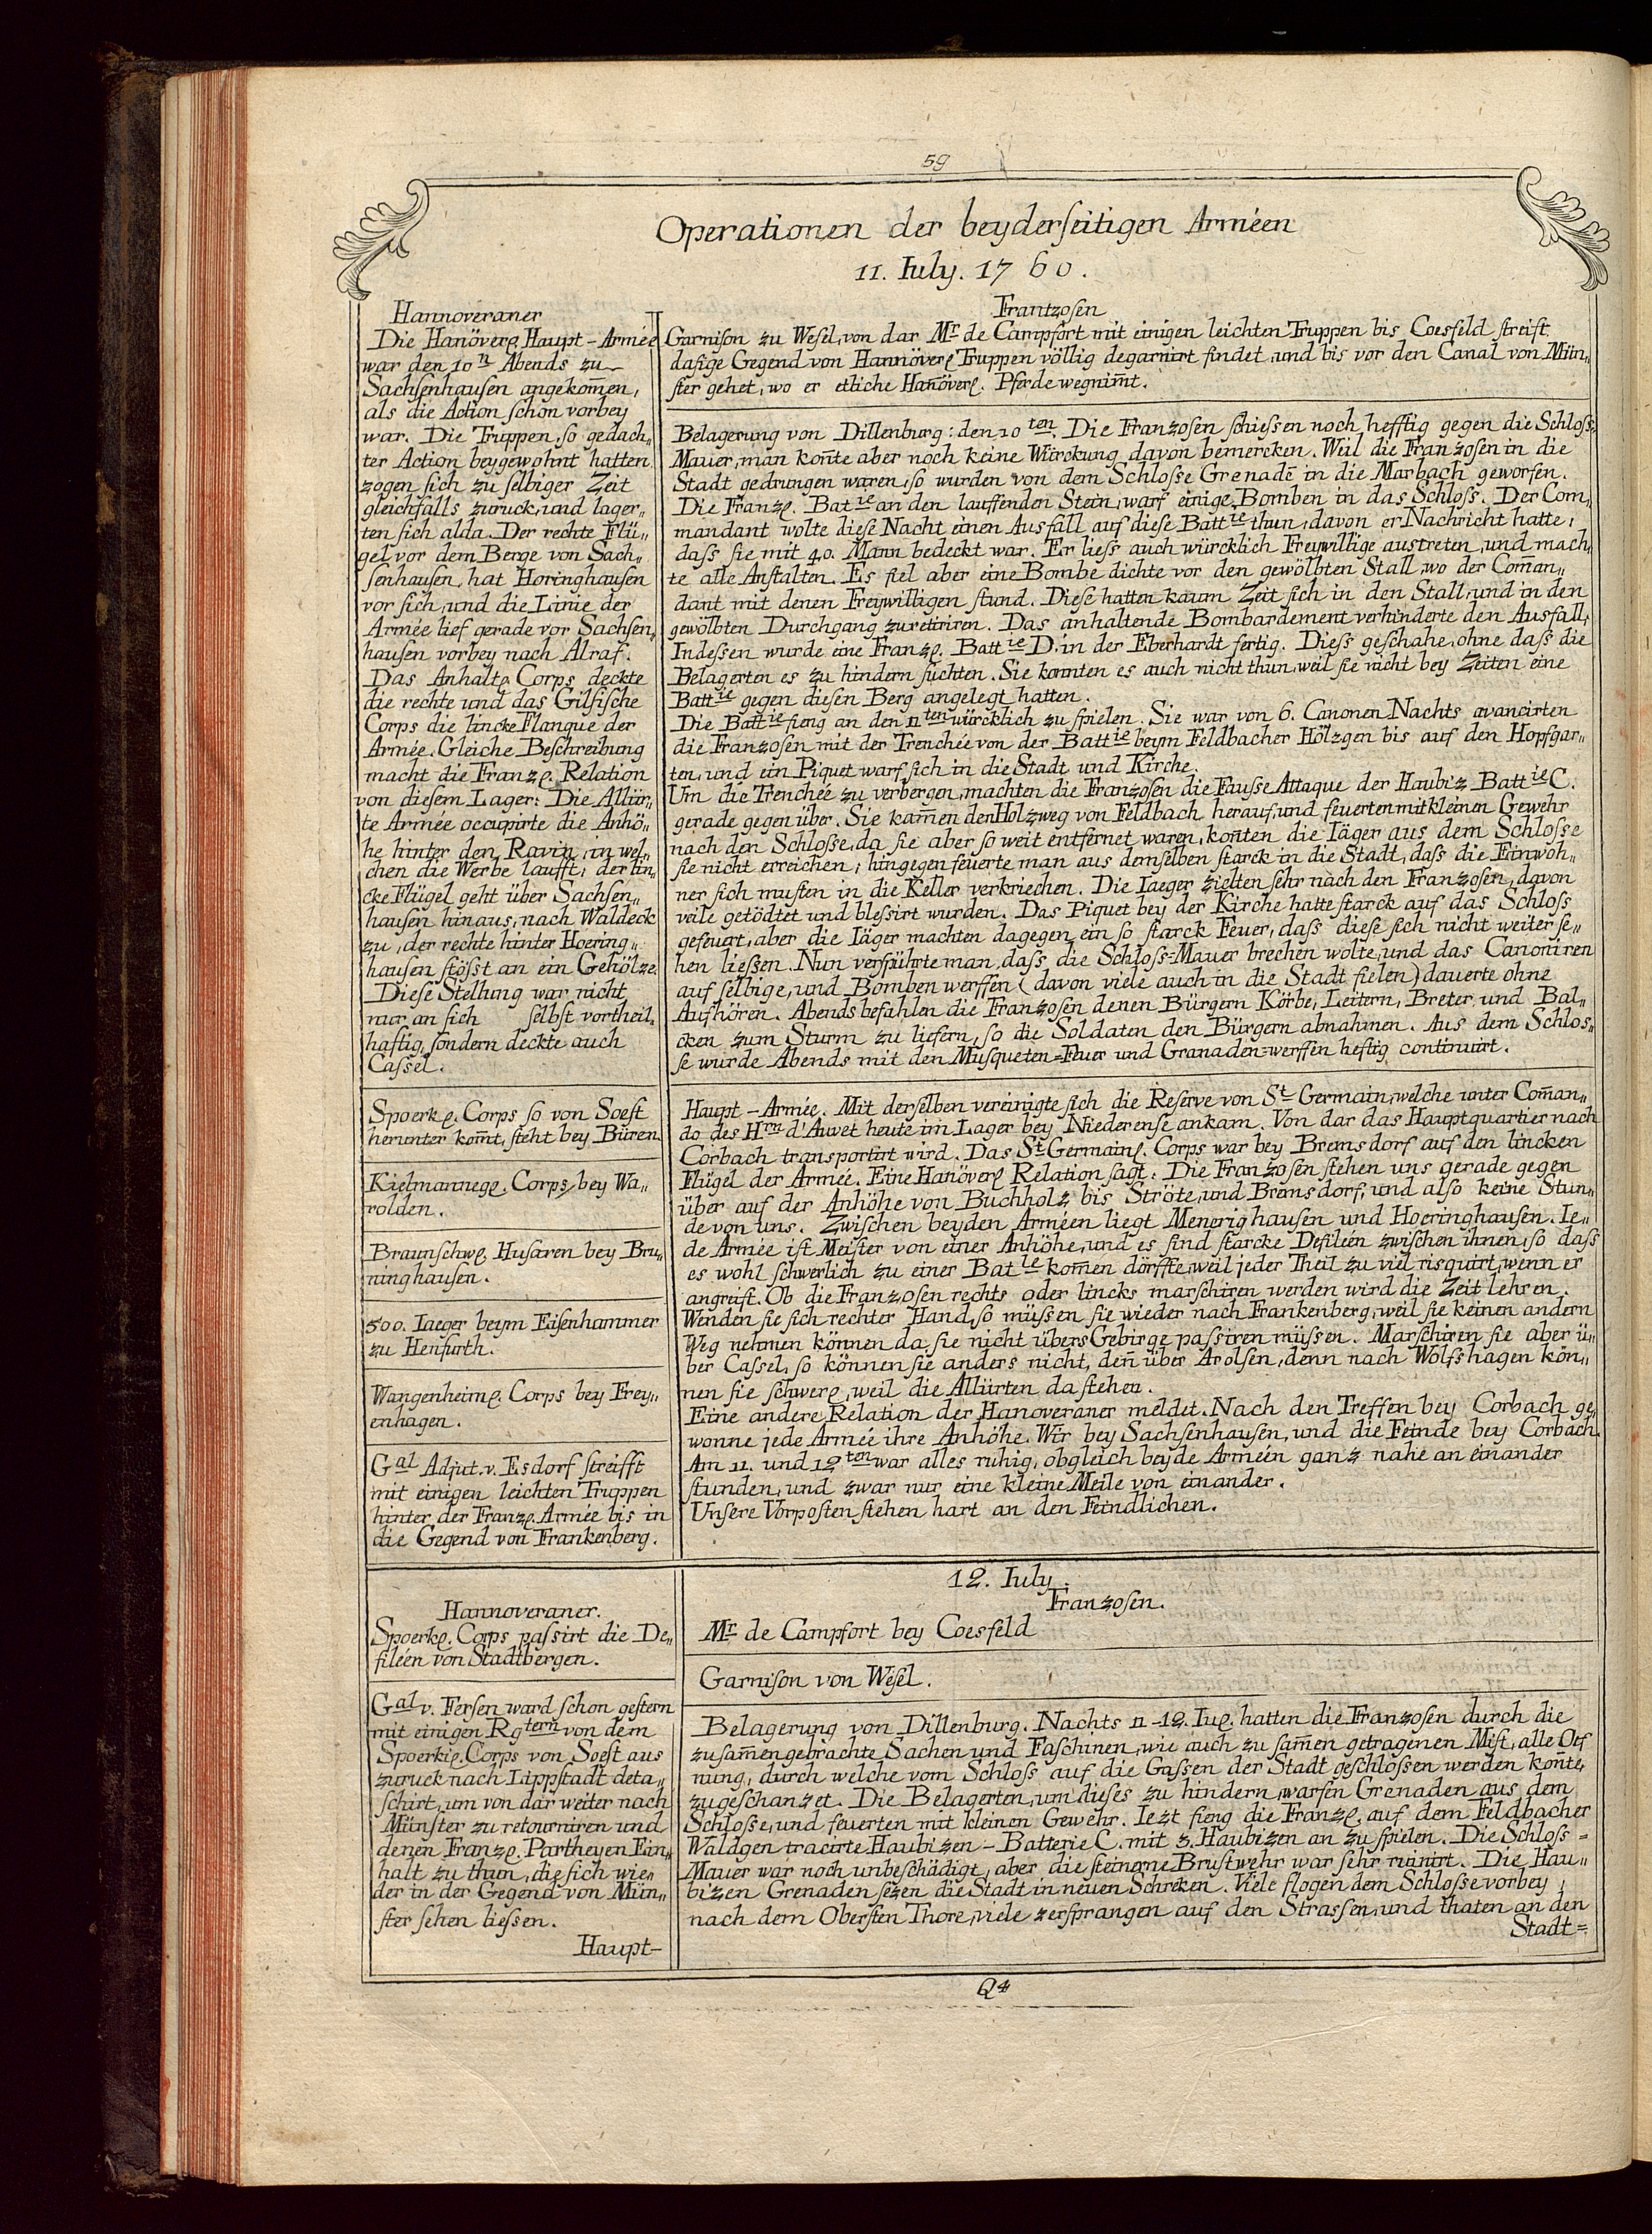 59
Operationen der beyderſeitigen Arméen
11. Iuly. 1760.
Hannoveraner
Die Hanöverꝭ. Haupt-Armée
war den 10n Abends zu
Sachſenhauſen angekom̄en,
als die Action ſchon vorbey
war. Die Truppen, ſo gedach„
ter Action beygewohnt hatten
zogen ſich zu ſelbiger Zeit
gleichfalls zuruck, und lager„
ten ſich alda. Der rechte Flü„
gel vor dem Berge von Sach„
ſenhauſen, hat Horinghauſen
vor ſich, und die Linie der
Armée lief gerade vor Sachſen„
hauſen vorbey nach Alraf.
Das Anhaltꝭ Corps deckte
die rechte und das Gilſiſche
Corps die lincke Flanque der
Armée. Gleiche Beſchreibung
macht die Franzꝭ. Relation
von dieſem Lager: Die Alliir„
te Armée occupirte die Anhö„
he hinter den Ravin, in wel„
chen die Werbe laufft; der lin„
cke Flügel geht über Sachſen„
hauſen hinaus, nach Waldeck
zu, der rechte hinter Hoering„
hauſen ſtöſst an ein Gehölze.
Dieſe Stellung war nicht
nur an ſich ſelbſt vortheil„
haftig, ſondern deckte auch
Caſſel.
Spoerkꝭ. Corps ſo von Soeſt
herunter kom̄t, ſteht bey Büren.
Kielmannegꝭ. Corps, bey Wa„
rolden.
Braunſchwꝭ. Huſaren bey Bru„
ninghauſen.
500. Iaeger beym Eiſenhammer
zu Henfurth.
Wangenheimꝭ. Corps bey Frey„
enhagen.
Gal Adjut. v. Esdorf ſtreifft
mit einigen leichten Truppen
hinter der Franzꝭ. Armée bis in
die Gegend von Frankenberg.
Frantzoſen
Garniſon zu Weſel, von dar Mr de Campfort mit einigen leichten Truppen bis Coesfeld ſtreift
daſige Gegend von Hannöverꝭ Truppen völlig degarnirt findet, und bis vor den Canal von Mün„
ſter gehet, wo er etliche Hanöverꝭ. Pferde wegnim̄t.
Belagerung von Dillenburg: den 10ten. Die Franzoſen ſchieſsen noch hefftig gegen die Schloſs„
Mauer, man kon̄te aber noch keine Würckung davon bemercken. Weil die Franzoſen in die
Stadt gedrungen waren, ſo wurden von dem Schloſſe Grenadē in die Marbach geworfen.
Die Franzꝭ. Batie an den lauffenden Stein, warf einige Bomben in das Schloſs. Der Com„
mandant wolte dieſe Nacht einen Ausfall auf dieſe Battie thun, davon er Nachricht hatte,
daſs ſie mit 40. Mann bedeckt war. Er lieſs auch würcklich Freywillige austreten, und mach„
te alle Anſtalten. Es fiel aber eine Bombe dichte vor den gewölbten Stall, wo der Com̄an„
dant mit denen Freywilligen ſtund. Dieſe hatten kaum Zeit ſich in den Stall, und in den
gewölbten Durchgang zu retiriren. Das anhaltende Bombardement verhinderte den Ausfall,
Indeſsen wurde eine Franzꝭ. Battie D. in der Eberhardt fertig. Dieſs geſchahe, ohne daſs die
Belagerten es zu hindern ſuchten. Sie konnten es auch nicht thun, weil ſie nicht bey Zeiten eine
Battie gegen dieſen Berg angelegt hatten.
Die Battie fieng an den 11ten würcklich zu ſpielen. Sie war von 6. Canonen. Nachts avancirten
die Franzoſen mit der Trenchée von der Battie beym Feldbacher Hölzgen bis auf den Hopfgar„
ten, und ein Piquet warf ſich in die Stadt und Kirche.
Um die Trenchée zu verbergen, machten die Franzoſen die Fauſse Attaque der Haubiz Battie C.
gerade gegen über. Sie kam̄en den Holzweg von Feldbach herauf, und feuerten mit kleinen Gewehr
nach den Schloſse, da ſie aber ſo weit entfernet waren, kon̄ten die Iäger aus dem Schloſse
ſie nicht erreichen; hingegen feuerte man aus demſelben ſtarck in die Stadt, daſs die Einwoh„
ner ſich muſten in die Keller verkriechen. Die Iaeger zielten ſehr nach den Franzoſen, davon
veile getödtet und bleſsirt wurden. Das Piquet bey der Kirche hatte ſtarck auf das Schloſs
gefeuert, aber die Iäger machten dagegen ein ſo ſtarck Feuer, daſs dieſe ſich nicht weiter ſe„
hen lieſsen. Nun verſpührte man, daſs die Schloſs-Mauer brechen wolte, und das Canoniren
auf ſelbige, und Bomben werffen (davon viele auch in die Stadt fielen) dauerte ohne
Aufhören. Abends befahlen die Franzoſen denen Bürgern Körbe, Leitern, Breter und Bal„
cken zum Sturm zu liefern, ſo die Soldaten den Bürgern abnahmen. Aus dem Schloſ„
ſe wurde Abends mit den Muſqueten=Feuer und Granaden=werffen heftig continuirt.
Haupt-Armée. Mit derſelben vereinigte ſich die Reſerve von St Germain, welche unter Com̄an„
do des Hrn d'Auvet heute im Lager bey Niederenſe ankam. Von dar das Hauptquartier nach
Corbach transportirt wird. Das St Germainꝭ. Corps war bey Bremsdorf auf den lincken
Flügel der Armée. Eine Hanöverꝭ Relation ſagt: Die Franzoſen ſtehen uns gerade gegen
über auf der Anhöhe von Buchholz bis Ströte, und Bremsdorf, und alſo keine Stun„
de von uns. Zwiſchen beyden Arméen liegt Menerighauſen und Hoeringhauſen. Ie„
de Armée iſt Meiſter von einer Anhöhe, und es ſind ſtarcke Defiléen zwiſchen ihnen, ſo daſs
es wohl ſchwerlich zu einer Batie kom̄en dörffte, weil jeder Theil zu viel risquirt, wenn er
angreift. Ob die Franzoſen rechts oder lincks marſchiren werden wird die Zeit lehren.
Wenden ſie ſich rechter Hand, ſo müſsen ſie wieder nach Frankenberg, weil ſie keinen andern
Weg nehmen können da ſie nicht übers Gebirge paſsiren müſsen. Marſchiren ſie aber ü„
ber Caſsel, ſo können ſie anders nicht, den̄ über Arolſen, denn nach Wolfshagen kön„
nen ſie ſchwerꝭ, weil die Alliirten da ſtehen.
Eine andere Relation der Hanoveraner meldet. Nach den Treffen bey Corbach ge„
wonne jede Armée ihre Anhöhe. Wir bey Sachſenhauſen, und die Feinde bey Corbach.
Am 11. und 12ten war alles ruhig, obgleich beyde Arméen ganz nahe an einander
ſtunden, und zwar nur eine kleine Meile von einander.
Unſere Vorpoſten ſtehen hart an den Feindlichen.
12. Iuly.
Hannoveraner.
Spoerkꝭ. Corps paſsirt die De„
filéen von Stadtbergen.
Gal v. Ferſen ward ſchon geſtern
mit einigen Rgtern von dem
Spoerkiꝭ. Corps von Soeſt aus
zuruck nach Lippſtadt deta„
ſchirt, um von dar weiter nach
Münſter zu retourniren und
denen Franzꝭ. Partheyen Ein„
halt zu thun, die ſich wie„
der in der Gegend von Mün„
ſter ſehen lieſsen.
Haupt-
Franzoſen.
Mr de Campfort bey Coesfeld
Garniſon von Weſel.
Belagerung von Dillenburg. Nachts 11-12. Iuꝭ. hatten die Franzoſen durch die
zuſam̄engebrachte Sachen und Faſchinen, wie auch zuſam̄en getragenen Miſt, alle Oef
nung, durch welche vom Schloſs auf die Gaſsen der Stadt geſchloſsen werden kon̄te,
zugeſchanzet. Die Belagerten, um dieſes zu hindern, warfen Grenaden aus dem
Schloſse, und feuerten mit kleinen Gewehr. Iezt fieng die Franzꝭ. auf dem Feldbacher
Waldgen tracirte Haubizen-Batterie C. mit 3. Haubizen an zu ſpielen. Die Schloſs=
Mauer war noch unbeſchädigt, aber die ſteinerne Bruſtwehr war ſehr ruinirt. Die Hau„
bizen Grenaden ſezen die Stadt in neuen Schreken. Viele flogen dem Schloſse vorbey,
nach dem Oberſten Thore, viele zerſprangen auf den Straſsen, und thaten an den
Stadt=
Q4